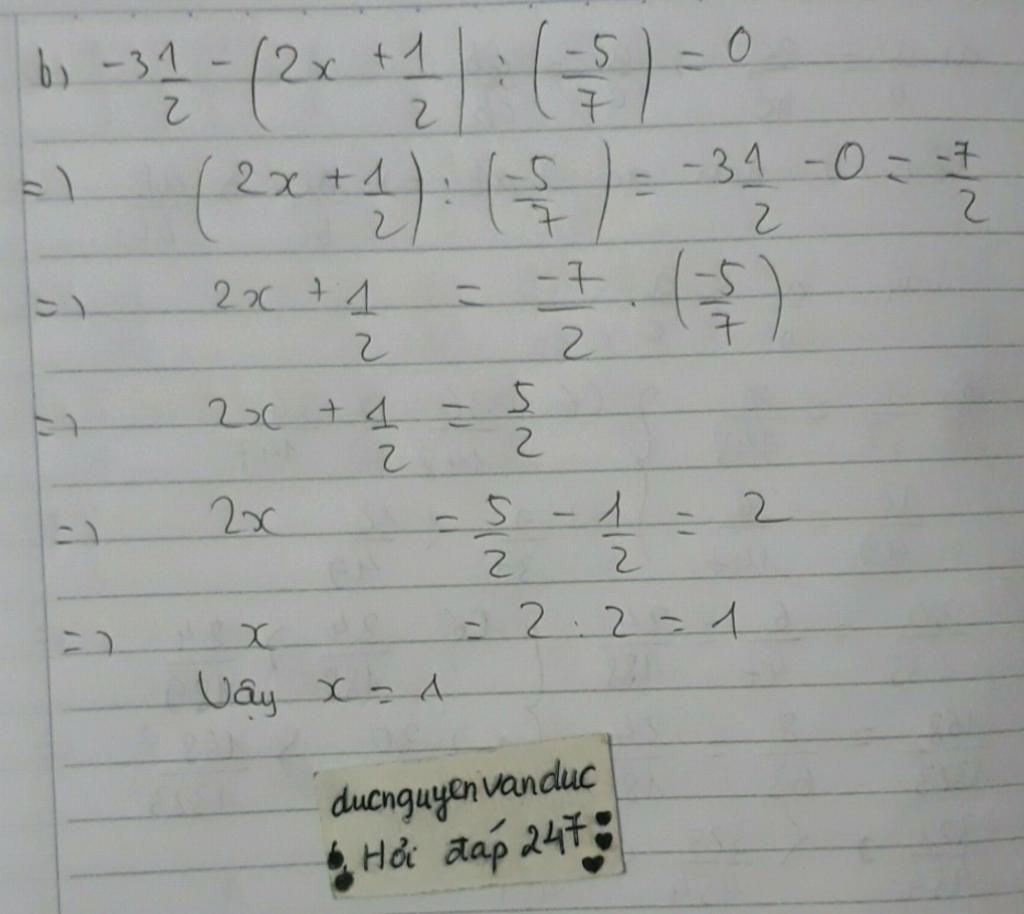 b, -3 1/2 - (2x + 1/2) : (-5/7) = 0
=> (2x + 1/2) : (-5/7) = -3 1/2 - 0 = -7/2
=> 2x + 1/2 = -7/2 . (-5/7)
=> 2x + 1/2 = 5/2
=> 2x = 5/2 - 1/2 = 2
=> x = 2 : 2 = 1
Vậy x = 1
ducnguyenvanduc
Hỏi đáp 247